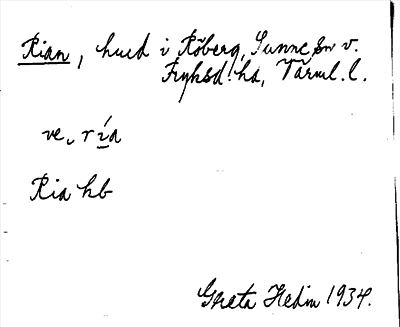 Rian, hud i Röberg, Sunne sn v.
Fryksd. hd, Värml. l.
ve, ría
Ria hb
Greta Hedin 1934.